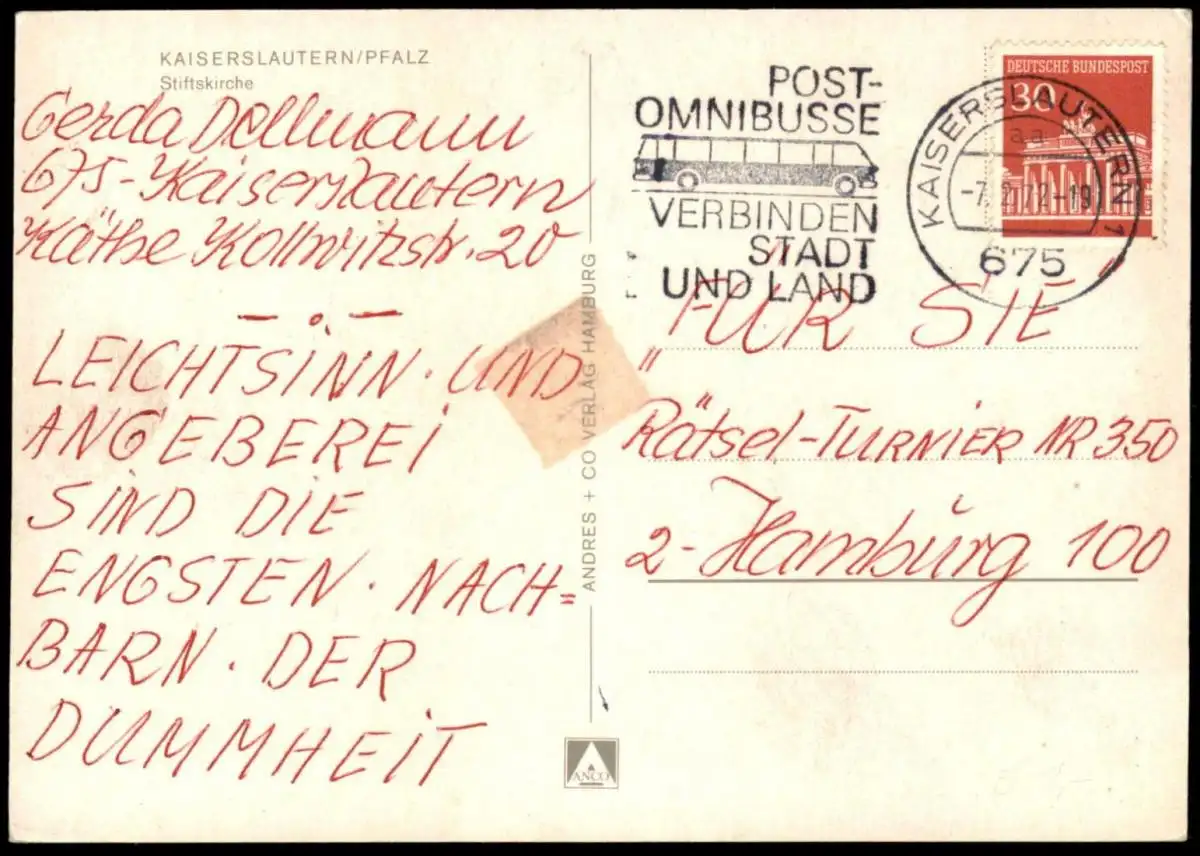 KAISERSLAUTERN/PFALZ
Stiftskirche
Gerda Dollmann
675-Kaiserslautern
Käthe Kollwitzstr. 20
LEICHTSINN. UND
ANGEBEREI
SIND DIE
ENGSTEN. NACH=
BARN. DER
DUMMHEIT
ANDRES + CO VERLAG HAMBURG
ANCO
POST-
OMNIBUSSE
VERBINDEN
STADT
UND LAND
DEUTSCHE BUNDESPOST
30
KAISERSLAUTERN 1
aa
-7.2.72-19
675
FÜR SIE
"
Rätsel-TURNIER NR 350
2-Hamburg 100